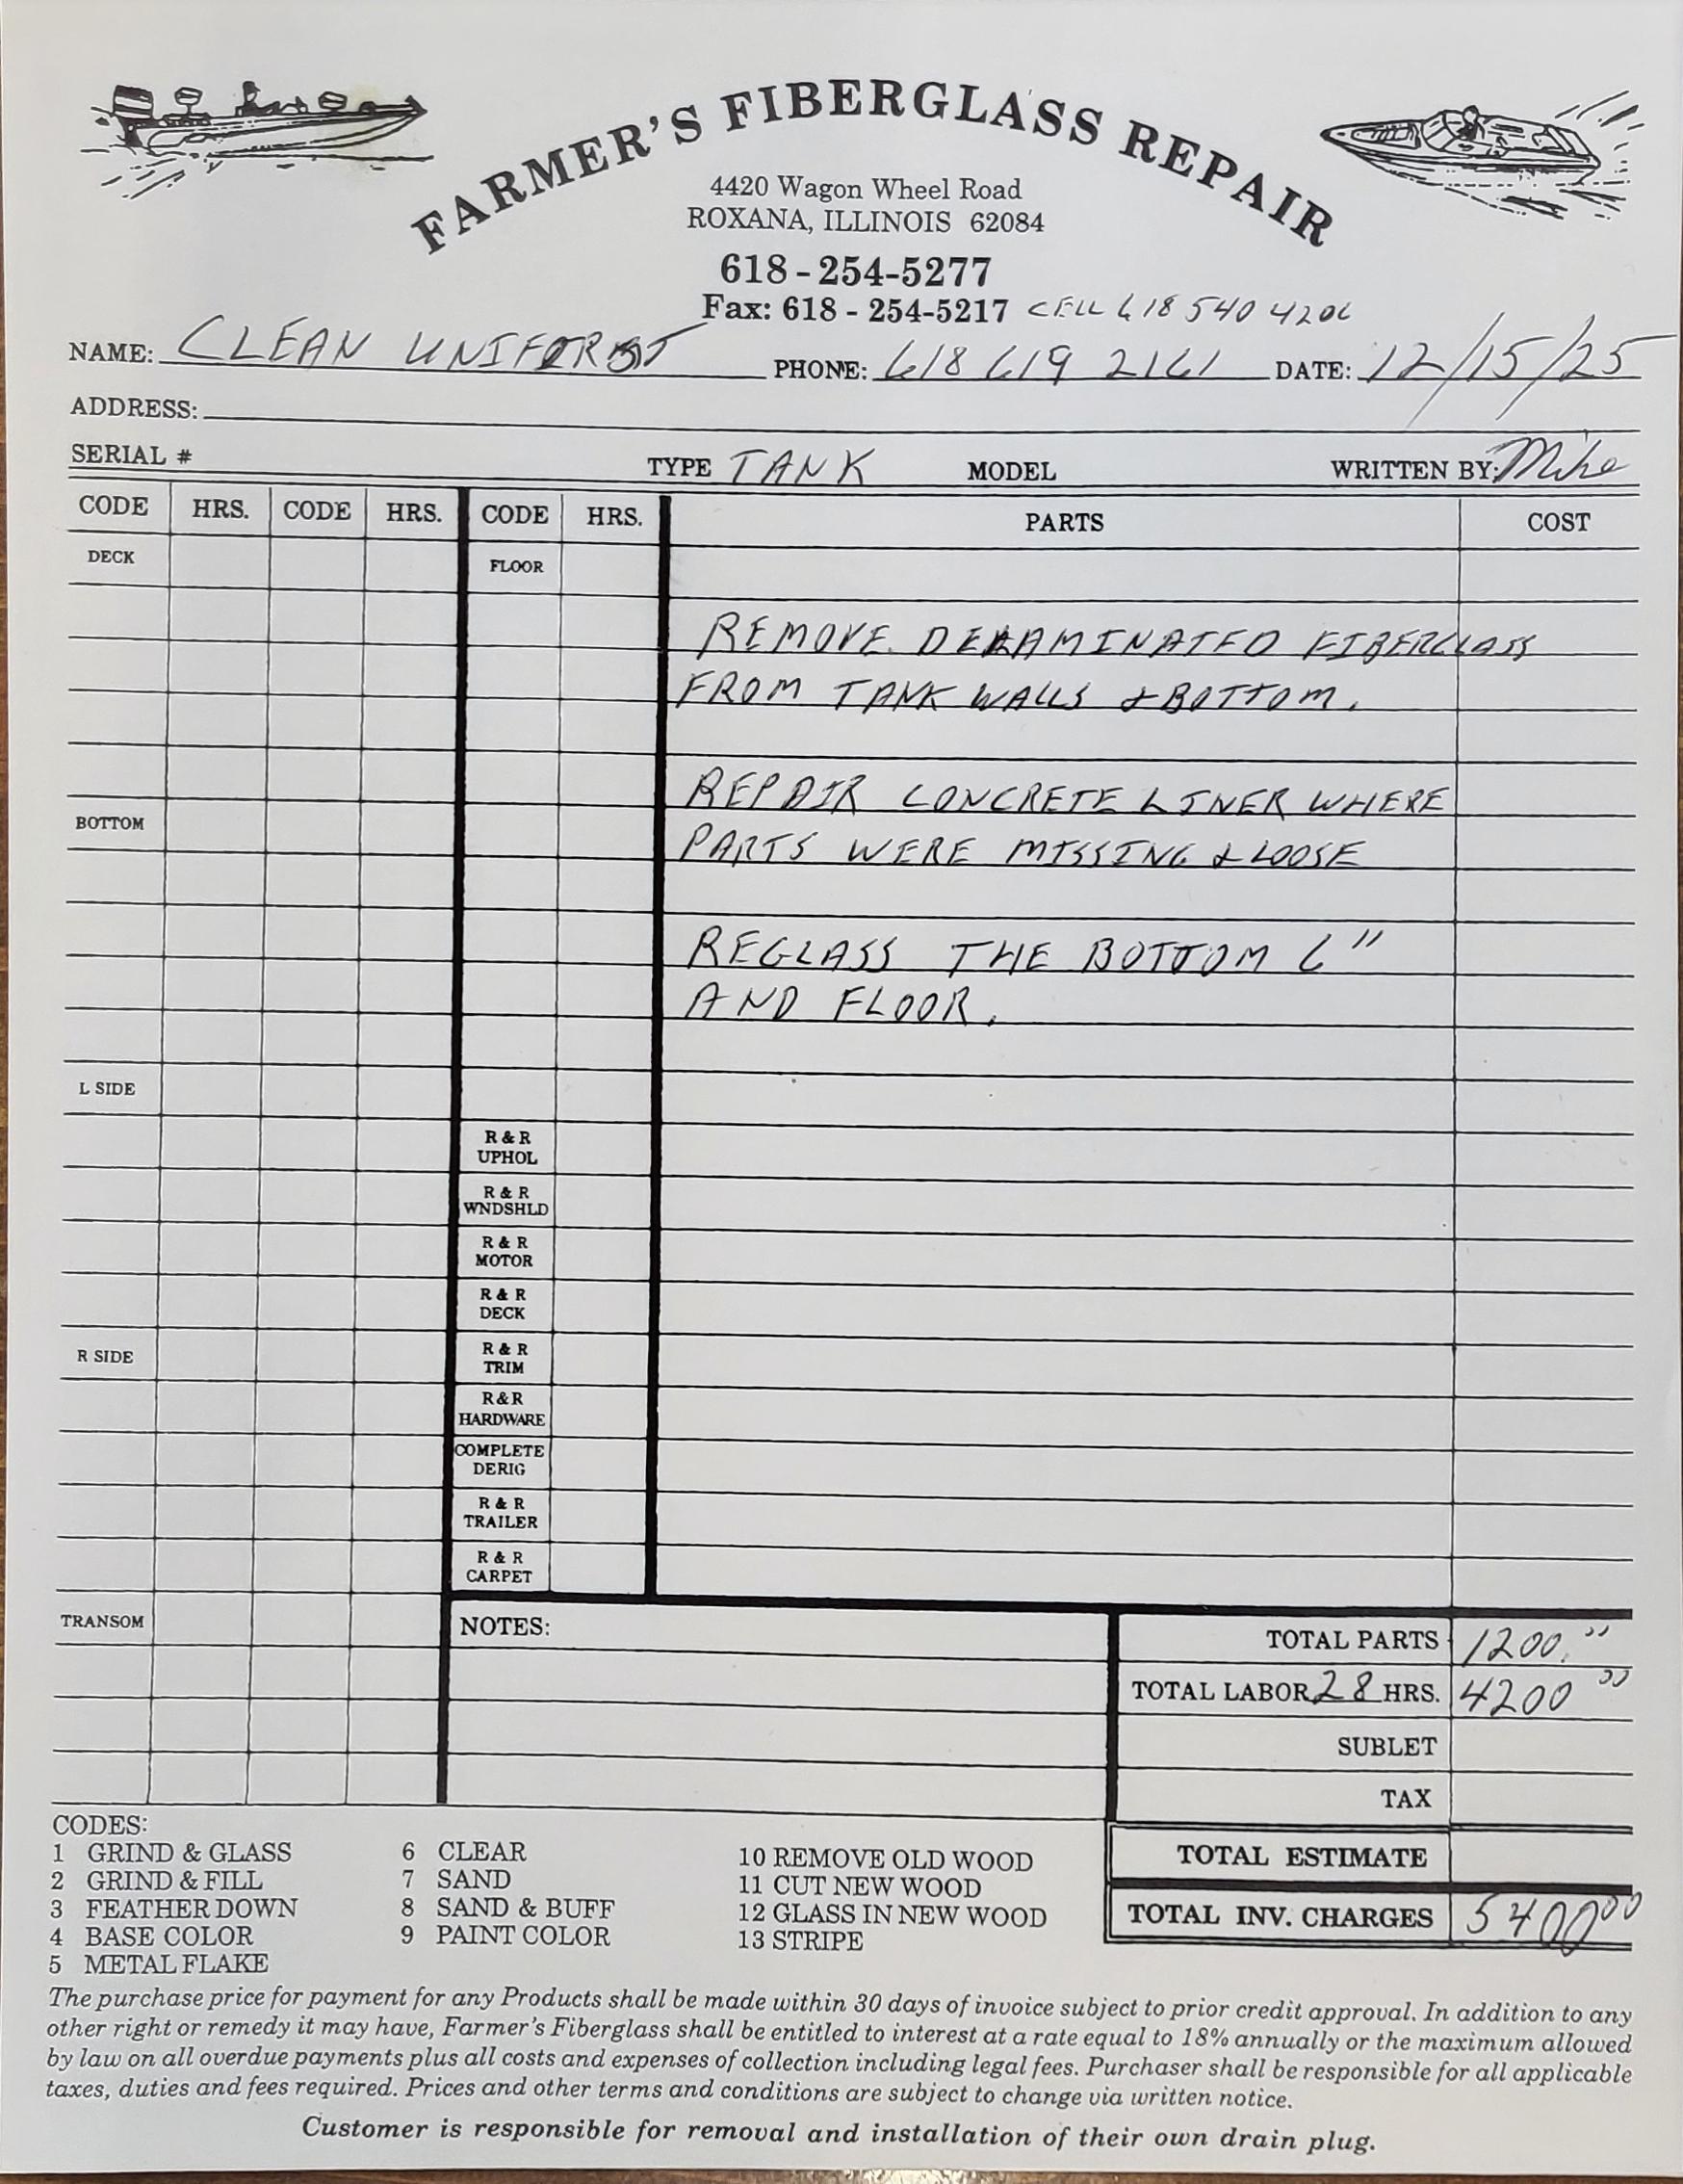 FARMER'S FIBERGLASS REPAIR
4420 Wagon Wheel Road
ROXANA, ILLINOIS 62084
618-254-5277
Fax: 618 - 254-5217 CELL 618 540 4206
NAME: CLEAN PHONE: 618 619 2161 DATE: 12/15/25
ADDRESS:
SERIAL # TYPE TANK MODEL WRITTEN BY: Mike
CODE HRS. CODE HRS. CODE HRS. PARTS COST
DECK FLOOR
REMOVE DELAMINATED FIBERGLASS
FROM TANK WALLS & BOTTOM.
REPAIR CONCRETE LINER WHERE
BOTTOM
PARTS WERE MISSING & LOOSE
REGLASS THE BOTTOM 6"
AND FLOOR.
L SIDE
R & R
UPHOL
R & R
WNDSHLD
R & R
MOTOR
R & R
DECK
R SIDE
R & R
TRIM
R&R
HARDWARE
COMPLETE
DERIG
R & R
TRAILER
R & R
CARPET
TRANSOM NOTES:
TOTAL PARTS 1200.00
TOTAL LABOR 28 HRS. 4200 00
SUBLET
TAX
TOTAL ESTIMATE
TOTAL INV. CHARGES 5400 00
CODES:
1 GRIND & GLASS
2 GRIND & FILL
3 FEATHER DOWN
4 BASE COLOR
5 METAL FLAKE
6 CLEAR
7 SAND
8 SAND & BUFF
9 PAINT COLOR
10 REMOVE OLD WOOD
11 CUT NEW WOOD
12 GLASS IN NEW WOOD
13 STRIPE
The purchase price for payment for any Products shall be made within 30 days of invoice subject to prior credit approval. In addition to any
other right or remedy it may have, Farmer's Fiberglass shall be entitled to interest at a rate equal to 18% annually or the maximum allowed
by law on all overdue payments plus all costs and expenses of collection including legal fees. Purchaser shall be responsible for all applicable
taxes, duties and fees required. Prices and other terms and conditions are subject to change via written notice.
Customer is responsible for removal and installation of their own drain plug.